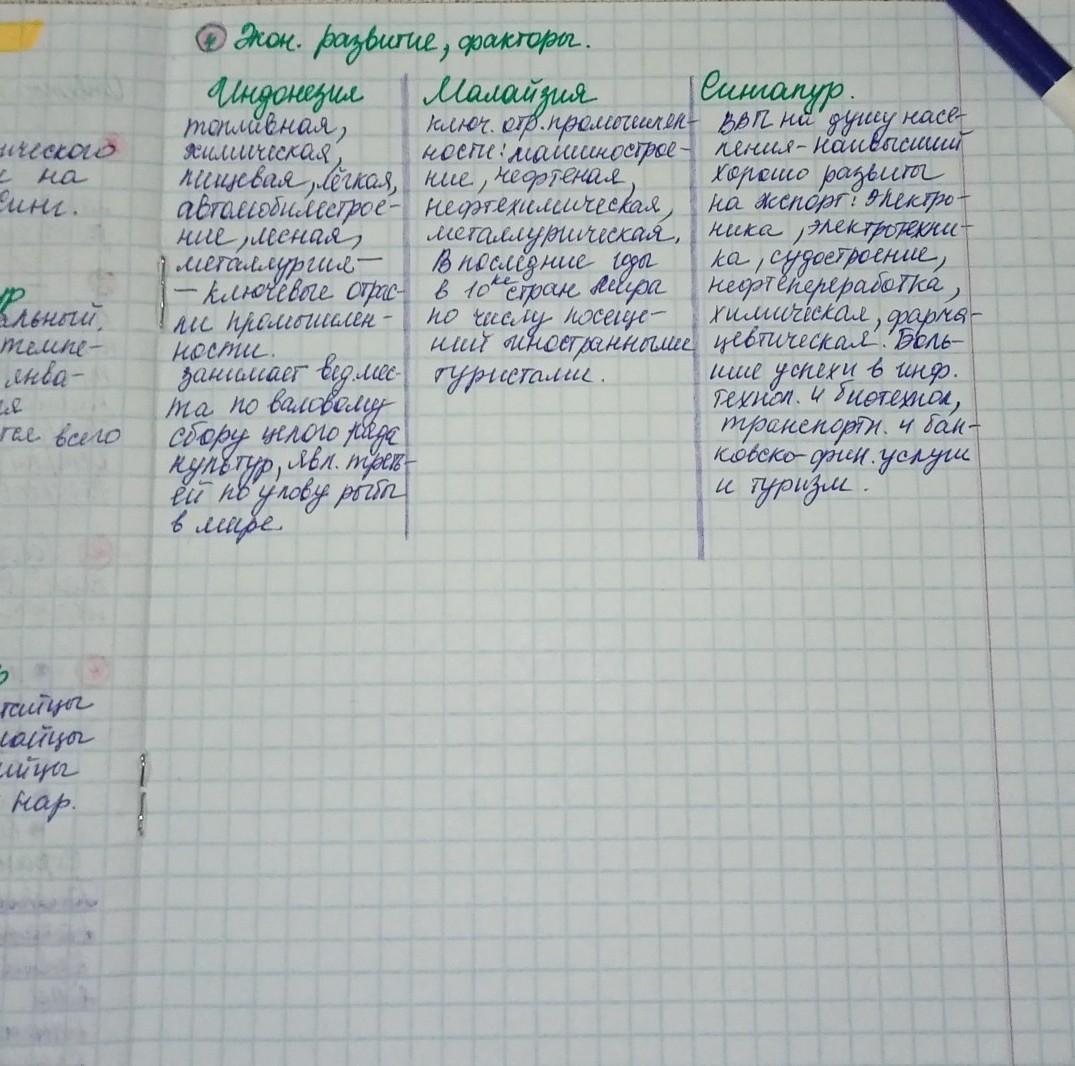 ④ Экон. развитие, факторы.
Индонезия
топливная,
химическая,
пищевая, лёгкая,
автомобилестрое-
ние, лесная,
металлургия—
— ключевые отрас-
ли промышлен-
ности.
занимает вед. мес-
та по валовому
сбору целого ряда
культур, явл. треть-
ей по улову рыбы
в мире.
Малайзия
ключ. отр. промышлен-
ности: машинострое-
ние, нефтеная,
нефтехимическая,
металлурическая.
В последние годы
в 10ке стран мира
по числу посеще-
ний иностранными
туристами.
Сингапур.
ВВП на душу насе-
ления- наивысший
хорошо развиты
на экспорт: электро-
ника, электротехни-
ка, судостроение,
нефтепереработка,
химическая, фарма-
цевтическая. Боль-
шие успехи в инф.
технол. и биотехнол,
транспортн. и бан-
ковско-фин. услуги
и туризм.
ического
на
Синг.
альный,
темпе-
янва-
ся
всего
лайцы
нар.